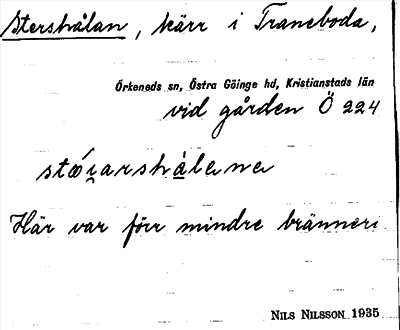 Stershålan, kärr i Traneboda,
Örkeneds sn, Östra Göinge hd, Kristianstads län
vid gården Ö 224
Här var förr mindre bränneri
NILS NILSSON 1935